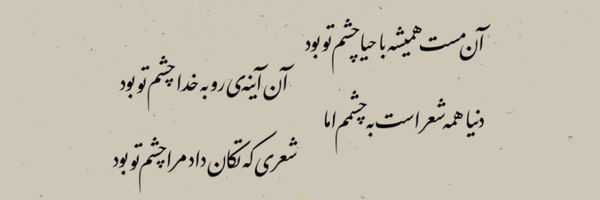 آن مست همیشه با حیا چشم تو بود
آن آینه‌ی رو به خدا چشم تو بود
دنیا همه شعر است به چشمم اما
شعری که تکان داد مرا چشم تو بود